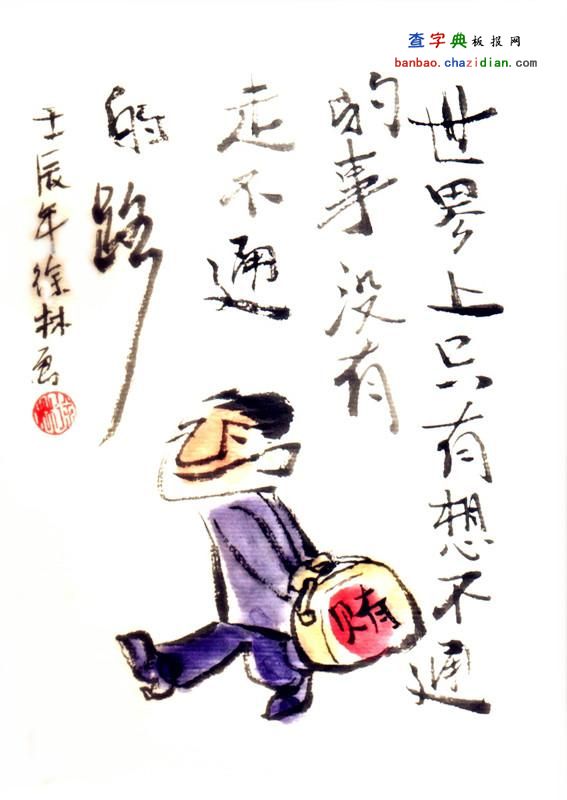 查字典板报网
banbao.chazidian.com
世界上只有想不通
的事没有
走不通
的路
壬辰年徐林画
贿